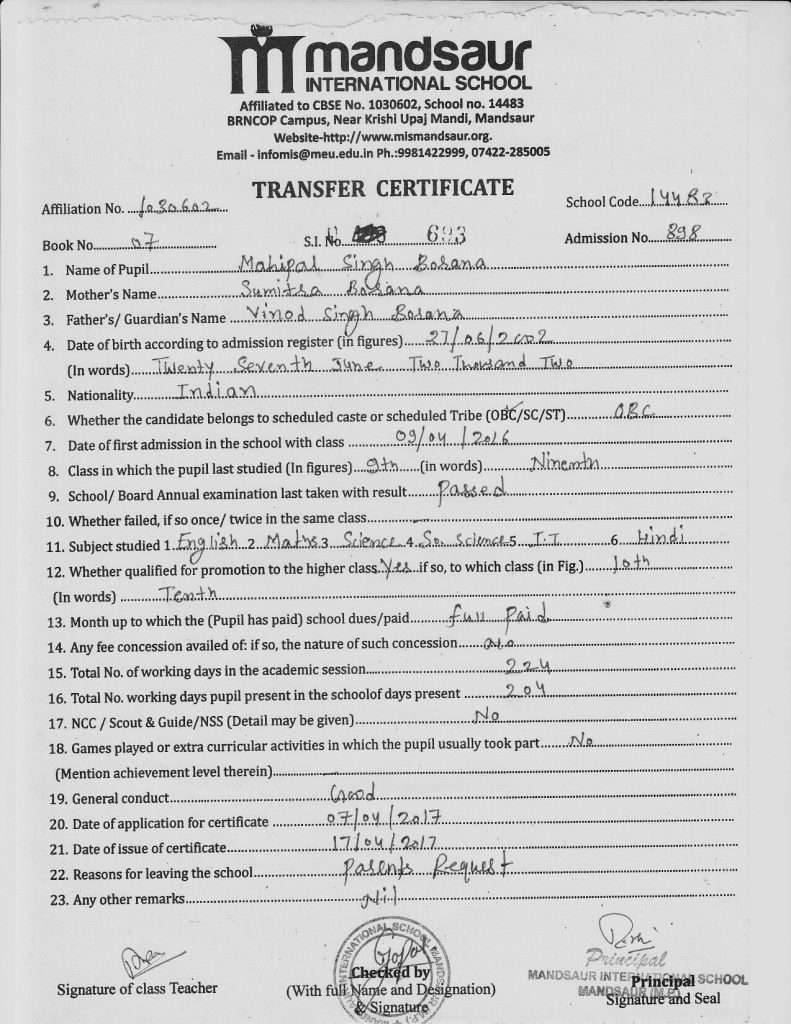 mandsaur
INTERNATIONAL SCHOOL
Affiliated to CBSE No. 1030602, School no. 14483
BRNCOP Campus, Near Krishi Upaj Mandi, Mandsaur
Website-http://www.mismandsaur.org.
Email - infomis@meu.edu.in Ph.:9981422999, 07422-285005
TRANSFER CERTIFICATE
Affiliation No. 1030602 School Code 14483
Book No. 07 S.I. No 693 Admission No. 898
1. Name of Pupil Mahipal Singh Bosana
2. Mother's Name Sumitra Bosana
3. Father's/ Guardian's Name Vinod Singh Bosana
4. Date of birth according to admission register (in figures) 27/06/2002
(In words) Twenty Seventh June Two Thousand Two
5. Nationality Indian
6. Whether the candidate belongs to scheduled caste or scheduled Tribe (OBC/SC/ST) OBC
7. Date of first admission in the school with class 09/04/2016
8. Class in which the pupil last studied (In figures) 9th (in words) Ninenth
9. School/ Board Annual examination last taken with result Passed
10. Whether failed, if so once/ twice in the same class –
11. Subject studied 1. English 2. Maths 3. Science 4. So. Science 5. I.T 6. Hindi
12. Whether qualified for promotion to the higher class Yes if so, to which class (in Fig.) 10th
(In words) Tenth
13. Month up to which the (Pupil has paid) school dues/paid full Paid
14. Any fee concession availed of: if so, the nature of such concession No
15. Total No. of working days in the academic session 224
16. Total No. working days pupil present in the schoolof days present 204
17. NCC / Scout & Guide/NSS (Detail may be given) No
18. Games played or extra curricular activities in which the pupil usually took part No
(Mention achievement level therein)
19. General conduct Good
20. Date of application for certificate 07/04/2017
21. Date of issue of certificate 17/04/2017
22. Reasons for leaving the school Parents Request
23. Any other remarks Nil
Principal
MANDSAUR INTERNATIONAL SCHOOL
MANDSAUR (M.P.)
Signature of class Teacher
Checked by
(With full Name and Designation)
& Signature
Principal
Signature and Seal